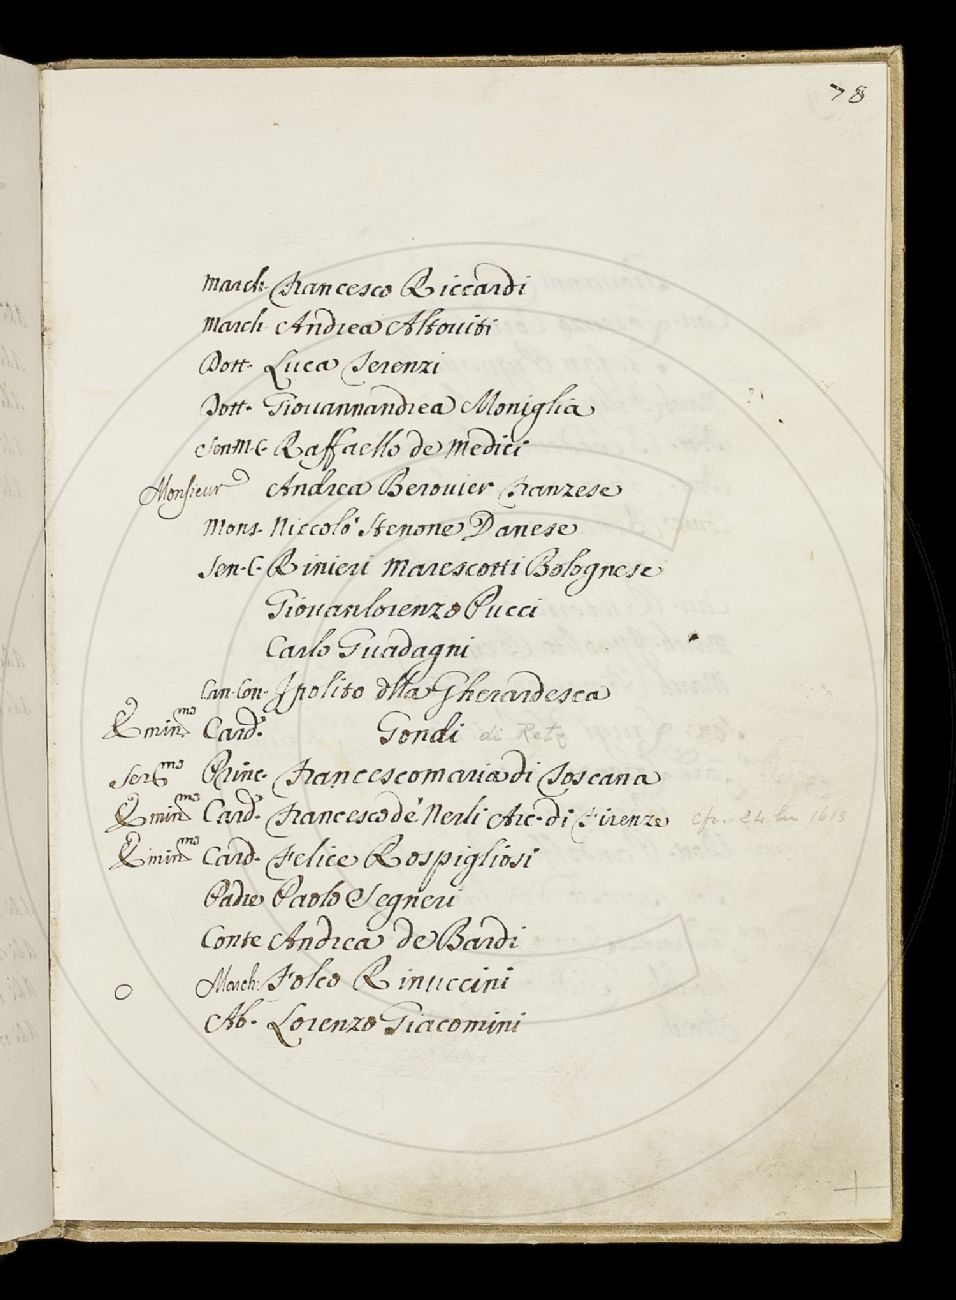 78
March. Francesco Riccardi
March. Andrea Altouiti
Dott. Luca Terenzi
Dott. Giouannandrea Moniglia
Sen. M. C. Raffaello de Medici
Monsieur Andrea Berouier Franzese
Mons. Niccolò Stenone Danese
Sen. C. Rinieri Marescotti Bolognese
Giouanlorenzo Pucci
Carlo Guadagni
Can. Con. Ipolito dlla Gherardesca
Emin.mo Card. Gondi di Retz
Ser.mo Princ. Francescomaria di Toscana
Emin.mo Card. Francesco de' Nerli Arc. di Firenze cfr. 24 1613
Emin.mo Card. Felice Rospigliosi
Padre Paolo Segneri
Conte Andrea de Bardi
March: Folco Rinuccini
Ab. Lorenzo Giacomini